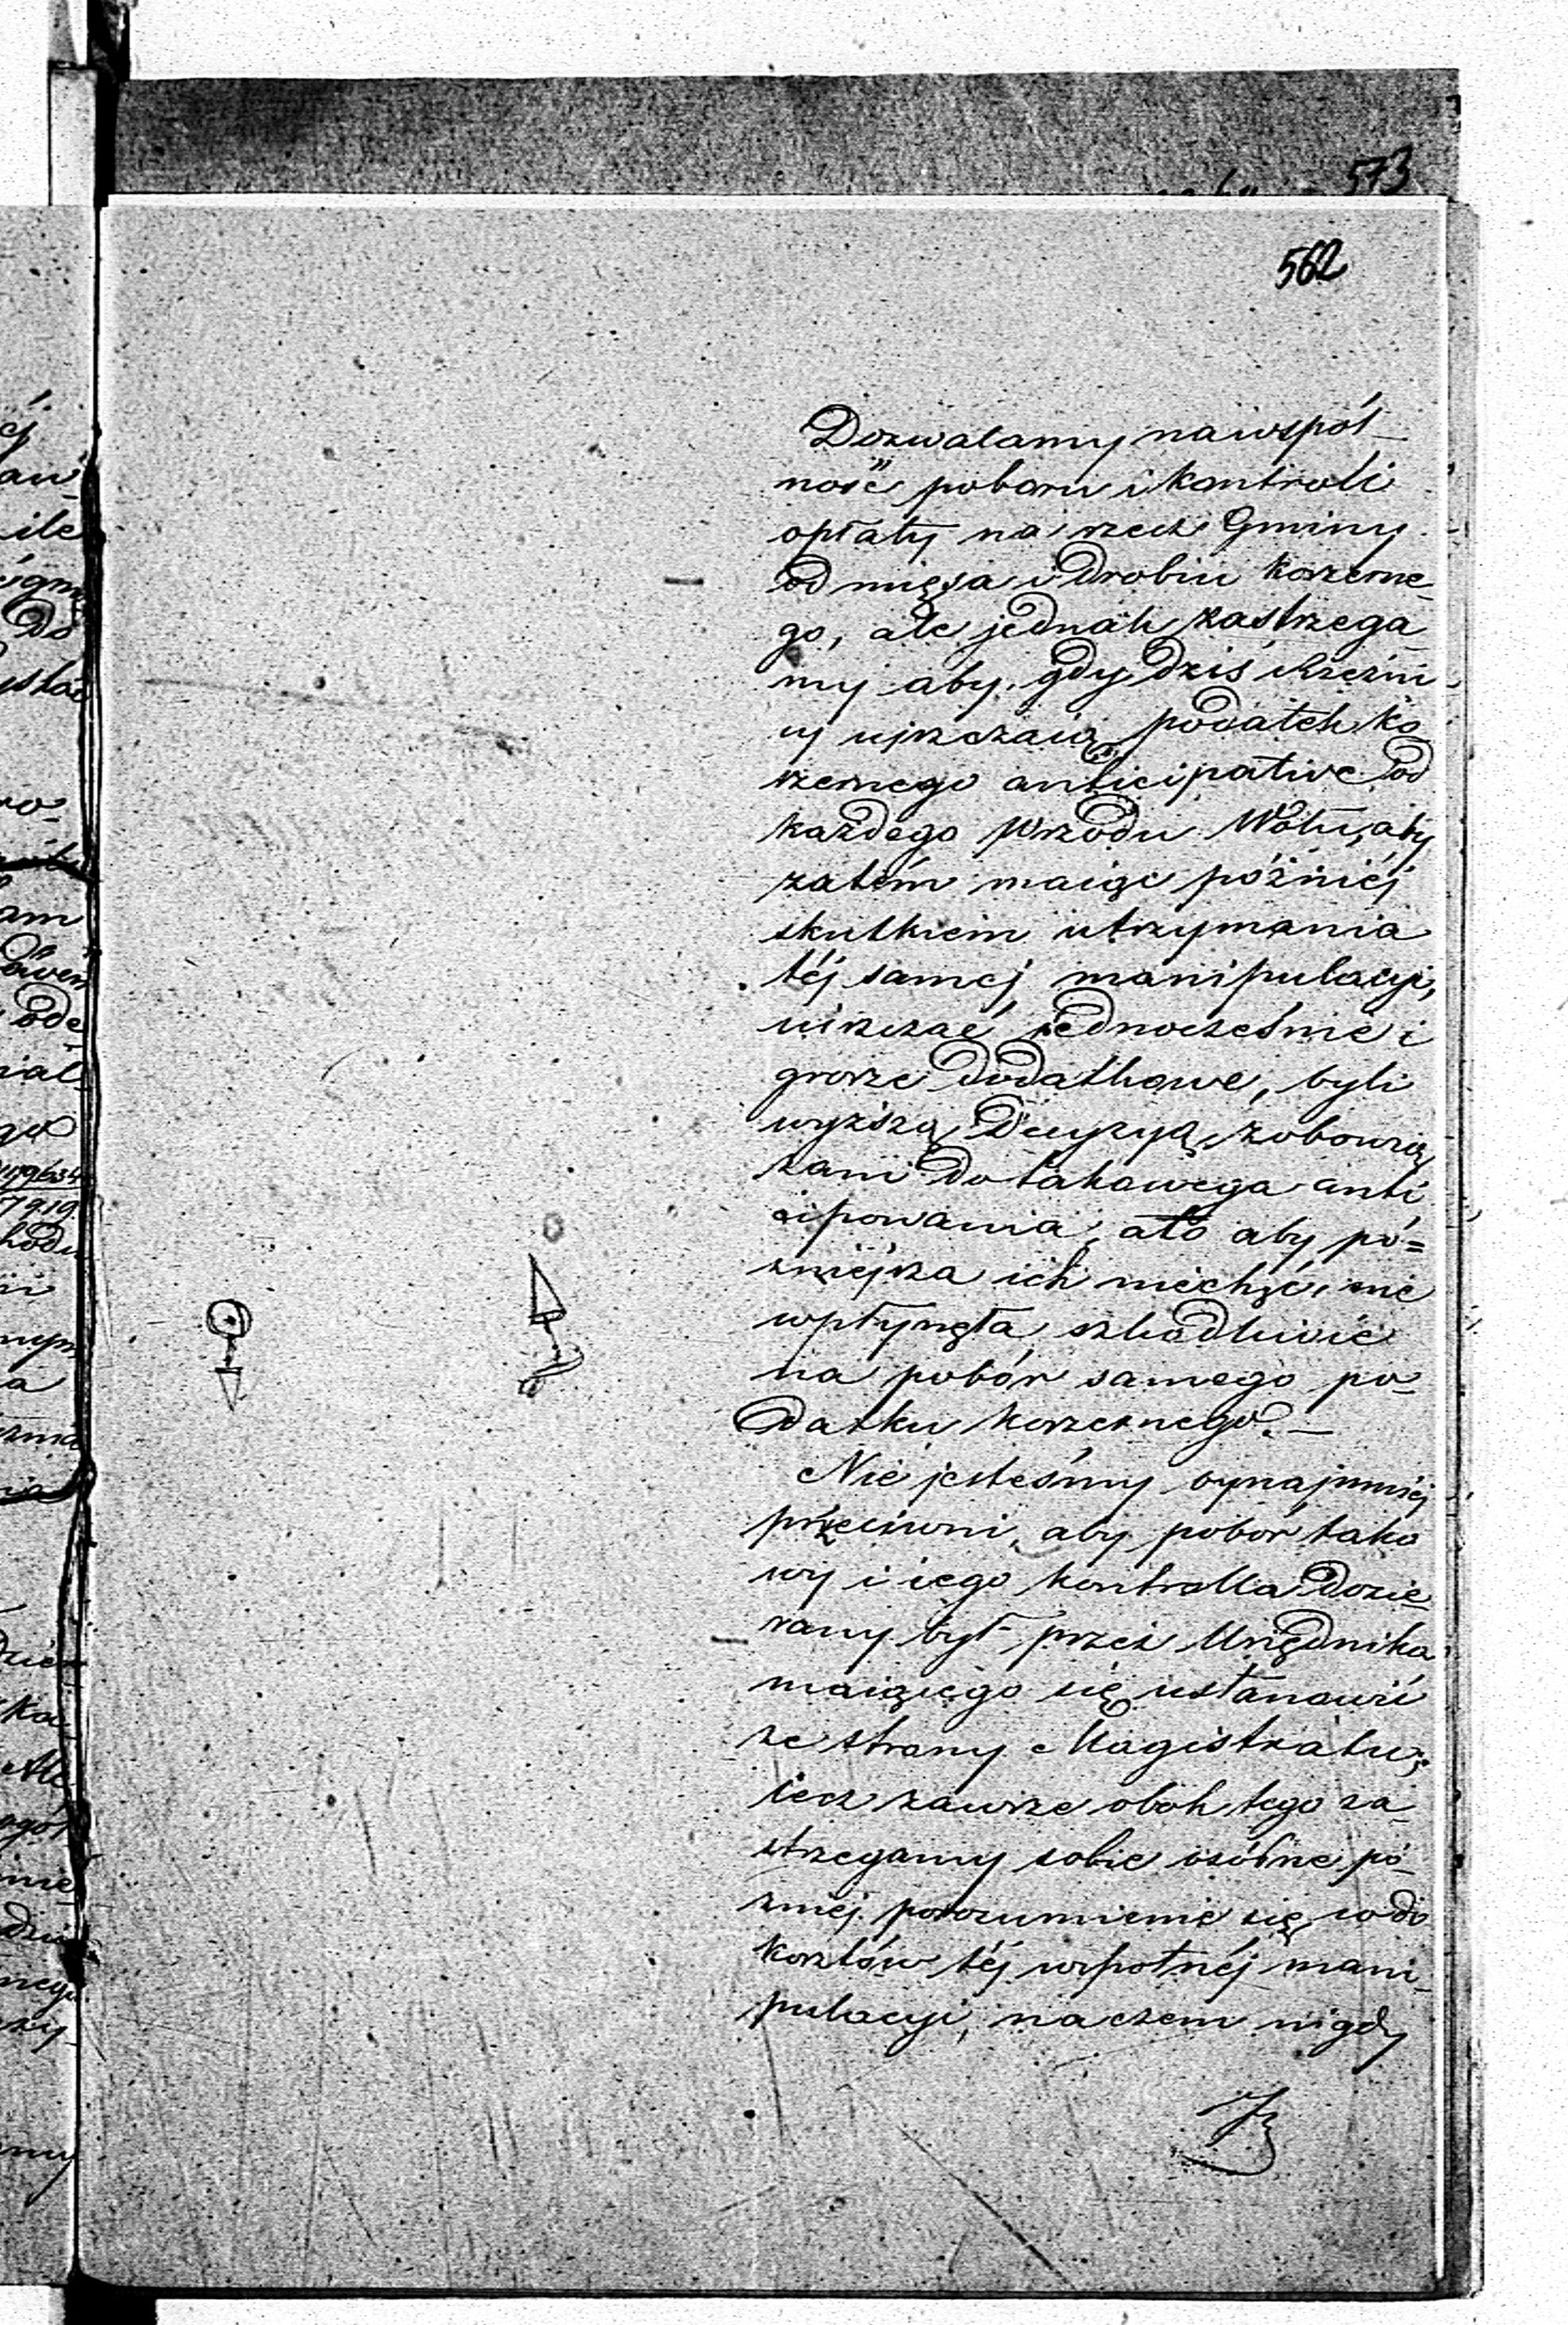 573
562
Dozwalamy na wspól-
ność poboru i kontroli
opłaty na rzecz Gminy
od mięsa i drobiu koszerne-
go, ale jednak zastrzega-
my aby, gdy dziś Rzeźni-
cy uiszczaią podatek ko-
szernego anticipative od
każdego Wrzodu Wołu, aby
zatém maiąc późniéj
skutkiem utrzymania
téj saméj manipulacyi,
uiszczać jednocześnie i
grosze dodatkowe, byli
wyższą Decyzyą zobowią-
zani do takowego anti-
cipowania, a to aby pó=
źniejsza ich niechęć, nie
wpłynęła szkodliwie
na pobór samego po-
datku koszernego. —
Nie jesteśmy bynajmniéj
przeciwni, aby pobór tako-
wy i iego kontrolla dozie-
rany był przez Urzędnika
maiącego się ustanowić
ze strony Magistratu;
lecz zawsze obok tego za-
strzegamy sobie osóbne pó-
źniéj porozumienie się co do
kosztów téj wspólnéj mani-
pulacyi, na czem nigdy